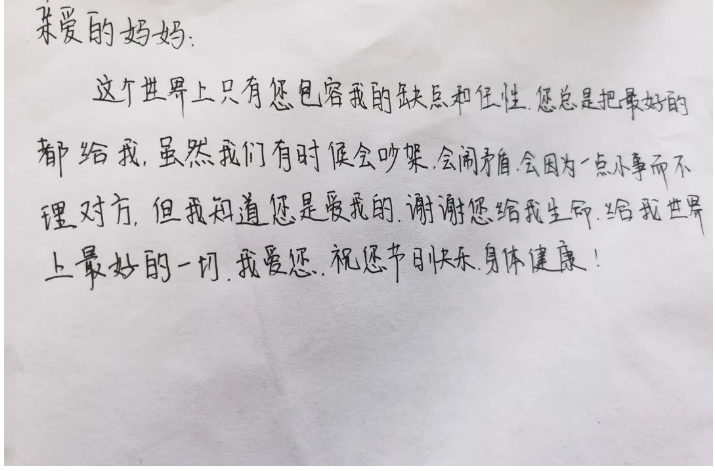 亲爱的妈妈：
这个世界上只有您包容我的缺点和任性.您总是把最好的
都给我,虽然我们有时候会吵架.会闹矛盾.会因为一点小事而不
理对方,但我知道您是爱我的.谢谢您给我生命.给我世界
上最好的一切.我爱您.祝您节日快乐.身体健康!